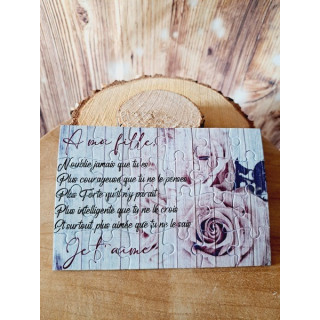 A ma fille
N'oublie jamais que tu es
Plus courageuse que tu ne le penses
Plus Forte qu'il n'y parait
Plus intelligente que tu ne le crois
Et surtout plus aimée que tu ne le sais
Je t'aime